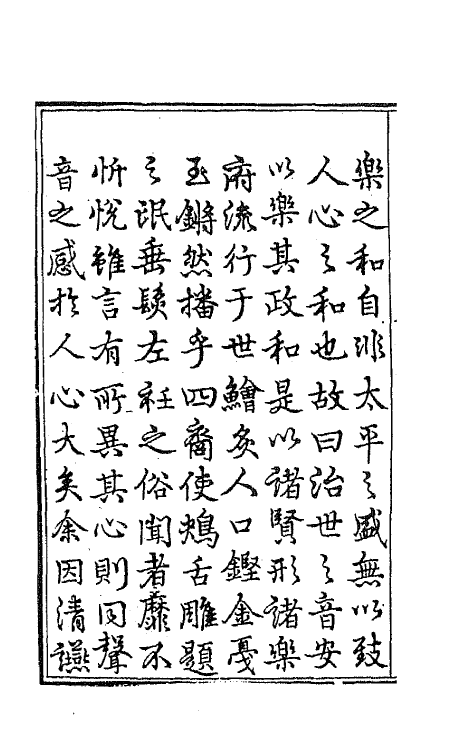 樂之和自非太平之盛無以致
人心之和也故曰治世之音安
以樂其政和是以諸賢形諸樂
府流行于世鱠炙人口鏗金戞
玉鏘然播乎四裔使鴂舌雕題
之氓垂髮左衽之俗聞者靡不
忻悅雖言有所異其心則同聲
音之感於人心大矣余因清讌